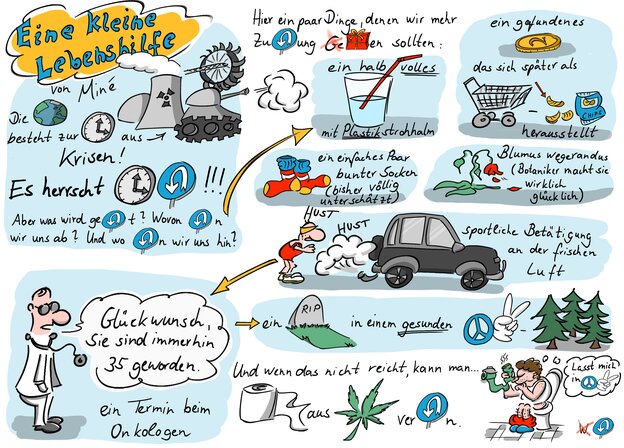 Eine kleine
Lebenshilfe
von Miné
Die
besteht zur
aus
Krisen!
Es herrscht
!!!
Aber was wird ge t? Woran n
wir uns ab? Und wo n wir uns hin?
Hier ein paar Dinge, denen wir mehr
Zu ung Ge en sollten:
ein halb volles
mit Plastikstrohhalm
ein gefundenes
das sich später als
CHIPS
herausstellt
ein einfaches Paar
bunter Socken
(bisher völlig
unterschätzt)
Blumus wegerandus
(Botaniker macht sie
wirklich
glücklich)
HUST
HUST
sportliche Betätigung
an der frischen
Luft
Glückwunsch,
Sie sind immerhin
35 geworden.
ein Termin beim
Onkologen
ein
RIP
in einem gesunden
-
Und wenn das nicht reicht, kann man...
aus
ver n.
Lasst mich
in